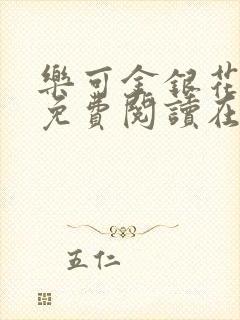 樂可金銀花
免費閱讀在
五仁